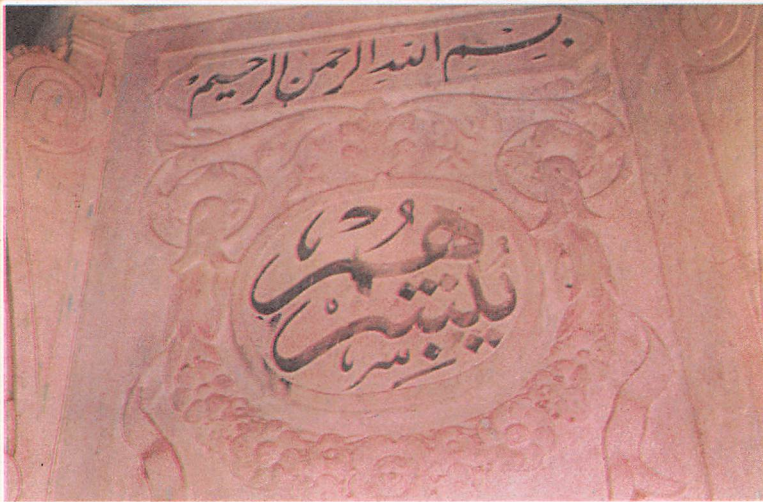 بسم الله الرحمن الرحيم
يبشرهم